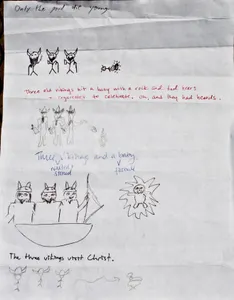 Only the good die young.
Three old vikings hit a baby with a rock and had beers
+ cigarettes to celebrate. Oh, and they had beards.
Three vikings and a baby.
The three vikings visit Christ.